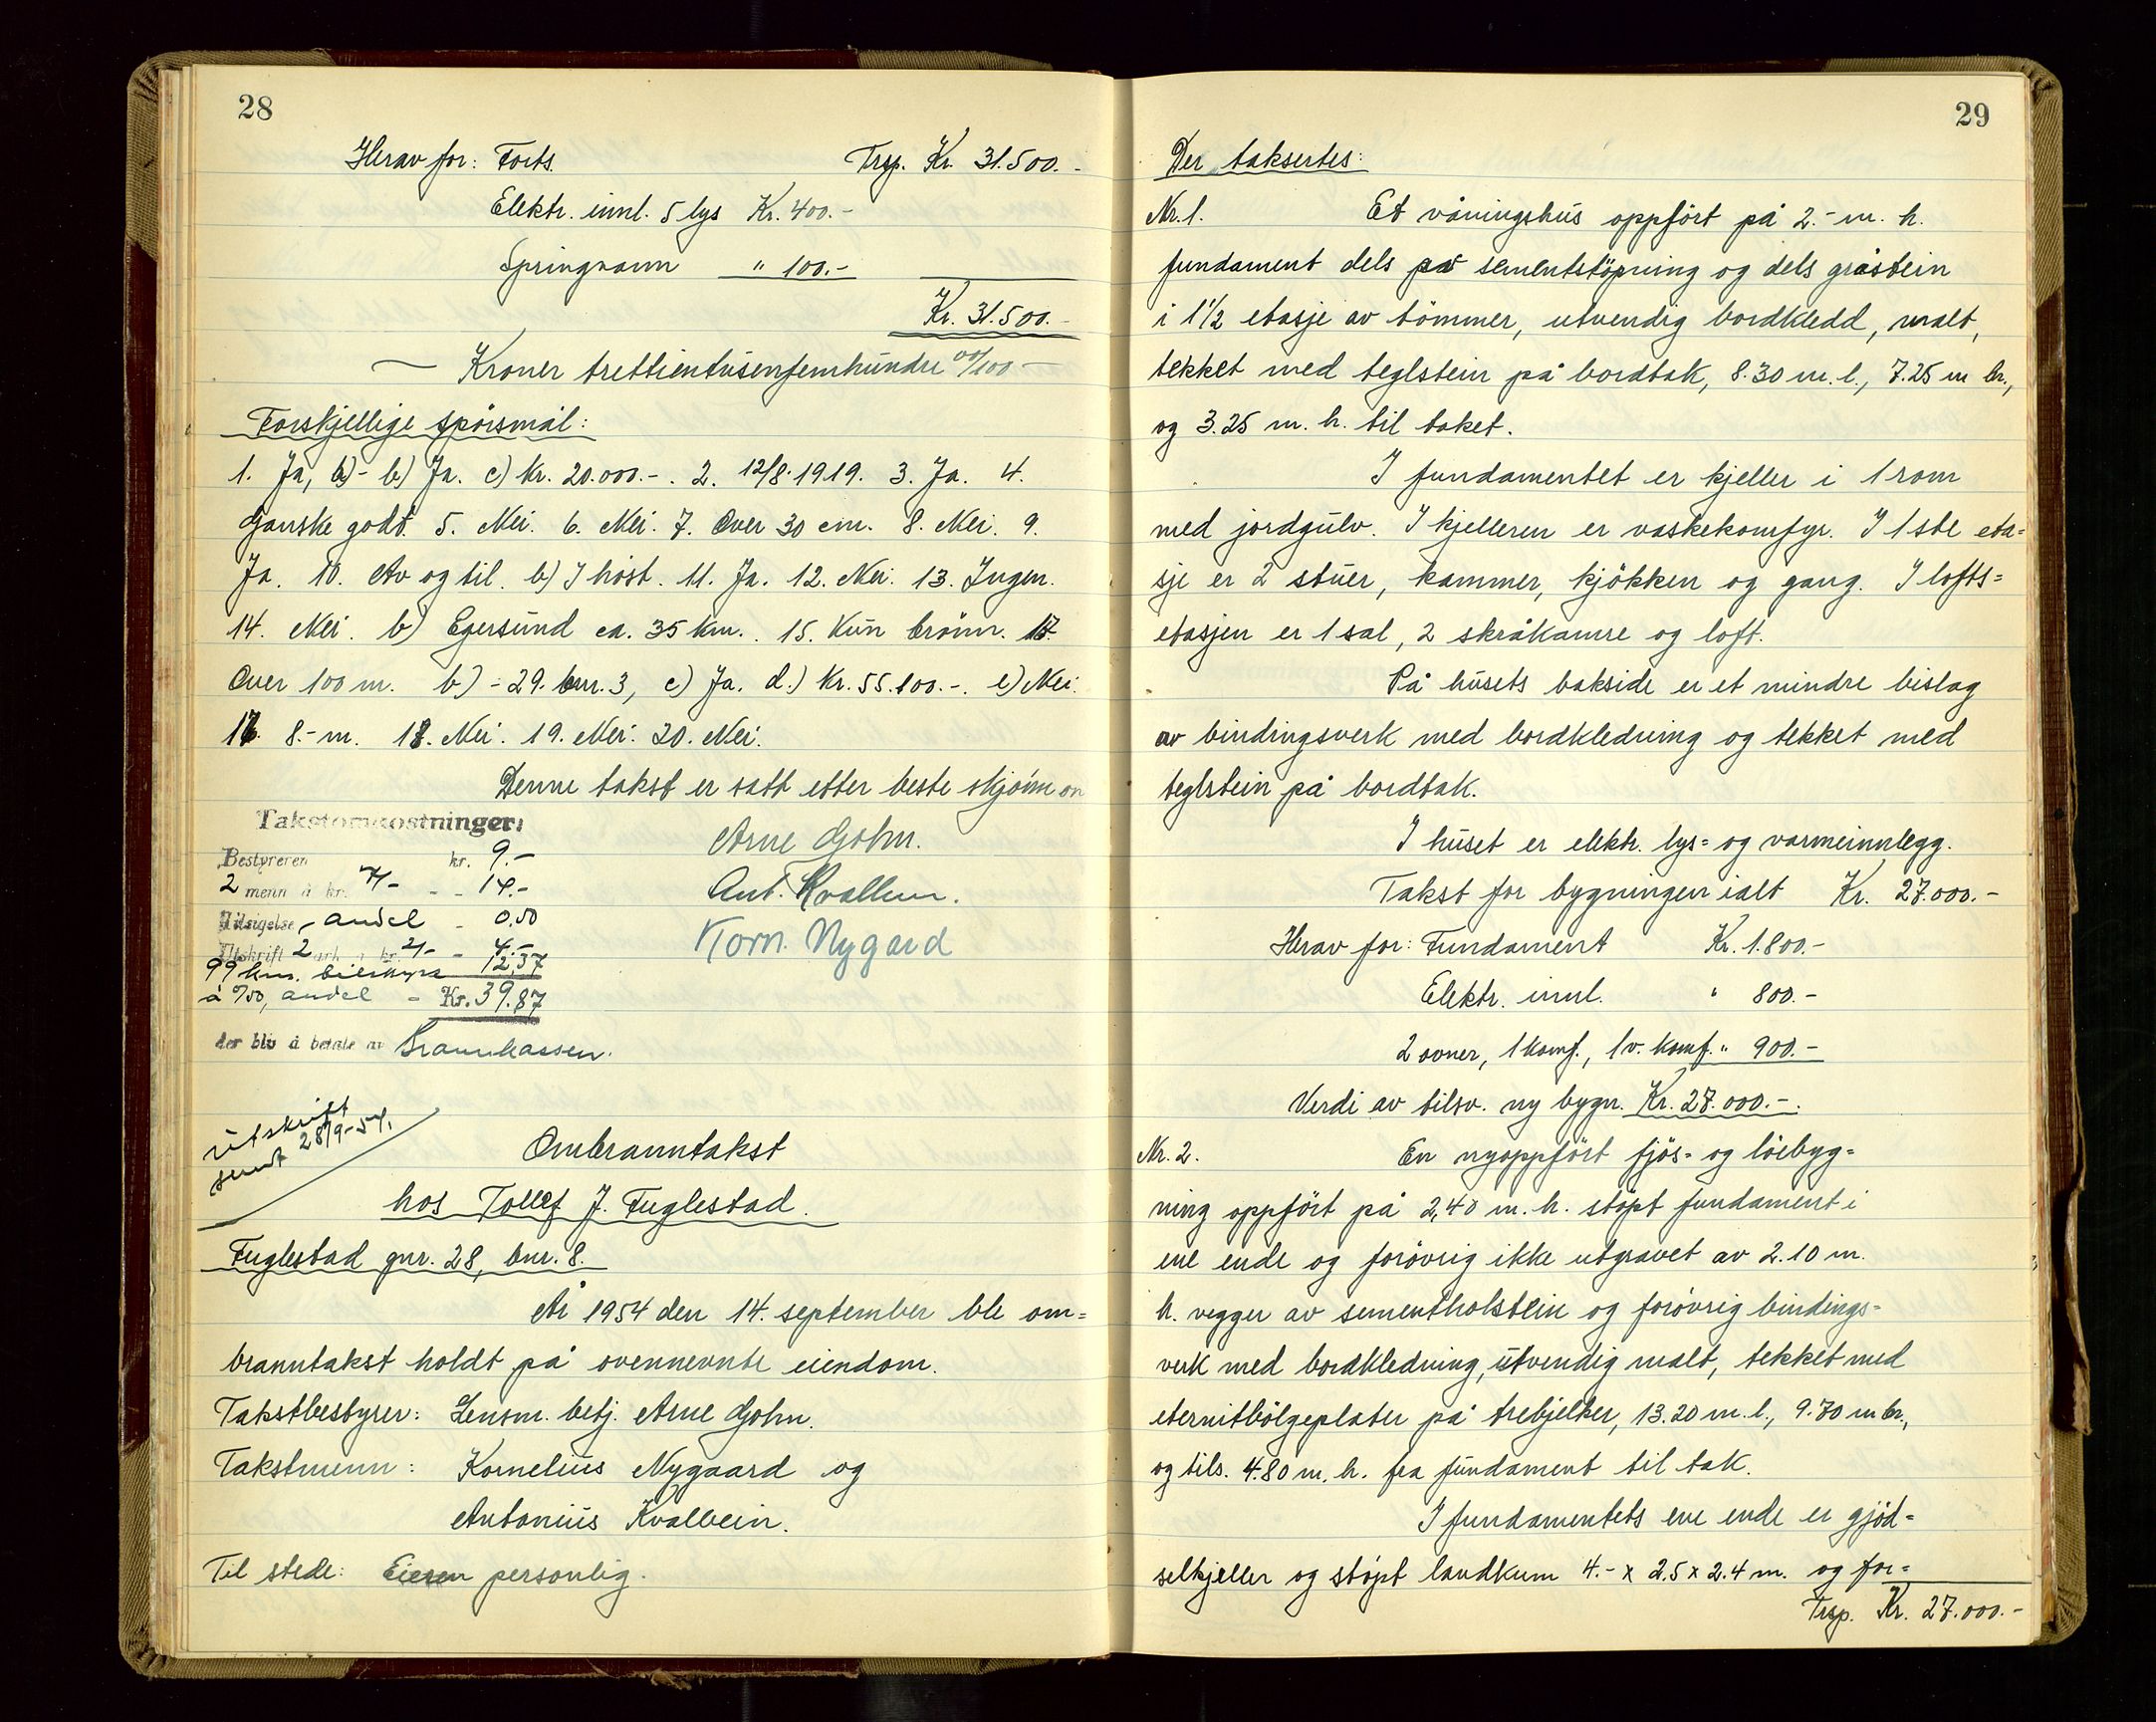 28
Herav for: Forts. Trsp. Kr. 31.500.-
Elektr. innl. 5 lys Kr. 400.-
Springvann " 100.-
Kr. 31.500.-
— Kroner trettientusenfemhundre 00/100 —
Forskjellige spörsmål:
1. Ja, a)- b) Ja. c) kr. 20.000.-. 2. 12/8.1919. 3. Ja. 4.
Ganske godt. 5. Nei. 6. Nei. 7. Over 30 cm. 8. Nei. 9.
Ja. 10. Av og til. b) I höst. 11. Ja. 12. Nei. 13. Ingen.
14. Nei. b) Egersund ca. 35 km.. 15. Kun brönn.
Over 100 m. b) - 29. bnr. 3, c) Ja. d.) Kr. 55.100.-. e) Nei.
17. 8.- m. 18. Nei. 19. Nei. 20. Nei.
Denne takst er satt etter beste skjönn
Takstomkostninger:
Bestyreren kr. 9.-
2 menn à kr. 7/- - - 14.-
Tilsigelse, andel - 0.50
Utskrift 2 ark à kr. 2/- - 4.-
99 km. bilskyss 12.37
à 0/50, andel - Kr. 39.87
der blir å betale av Brannkassen.
Utskrift
sendt 28/9-54.
Arne Gohn.
Ant. Kvalbein.
Korn. Nygård
Ombranntakst
hos Tollef J. Fuglestad.
Fuglestad gnr. 28, bnr. 8.
År 1954 den 14. september ble om=
branntakst holdt på ovennevnte eiendom.
Takstbestyrer: Lensm. betj. Arne Gohn.
Takstmenn: Kornelius Nygaard og
Antonius Kvalbein.
Til stede: Eieren personlig.
29
Der taksertes:
Nr. 1. Et våningshus oppfört på 2.- m. h.
fundament dels av sementstöpning og dels gråstein
i 1 1/2 etasje av tömmer, utvendig bordkledd, malt,
tekket med teglstein på bordtak, 8.30 m. l., 7.25 m br.,
og 3.25 m. h. til taket.
I fundamentet er kjeller i 1 rom
med jordgulv. I kjelleren er vaskekomfyr. I 1ste eta=
sje er 2 stuer, kammer, kjökken og gang. I lofts=
etasjen er 1 sal, 2 skråkamre og loft.
På husets bakside er et mindre bislag
av bindingsverk med bordkledning og tekket med
teglstein på bordtak.
I huset er elektr. lys= og varmeinnlegg.
Takst for bygningen ialt Kr. 27.000.-
Herav for: Fundament Kr. 1.800.-
Elektr. innl. " 800.-
2 ovner, 1 komf., 1 v. komf. " 900.-
Verdi av tilsv. ny bygn. Kr. 27.000.-.
Nr. 2. En nyoppfört fjös- og löebyg=
ning oppfört på 2,40 m. h. stöpt fundament i
ene ende og forövrig ikke utgravet av 2.10 m.
h. vegger av sementholstein og forövrig bindings=
verk med bordkledning, utvendig malt, tekket med
eternitbölgeplater på trebjelker, 13.20 m. l., 9.70 m br.,
og tils. 4.80 m. h. fra fundament til tak.
I fundamentets ene ende er gjöd=
selkjeller og stöpt landkum 4.- x 2.5 x 2.4 m. og for=
Trsp. Kr. 27.000.-